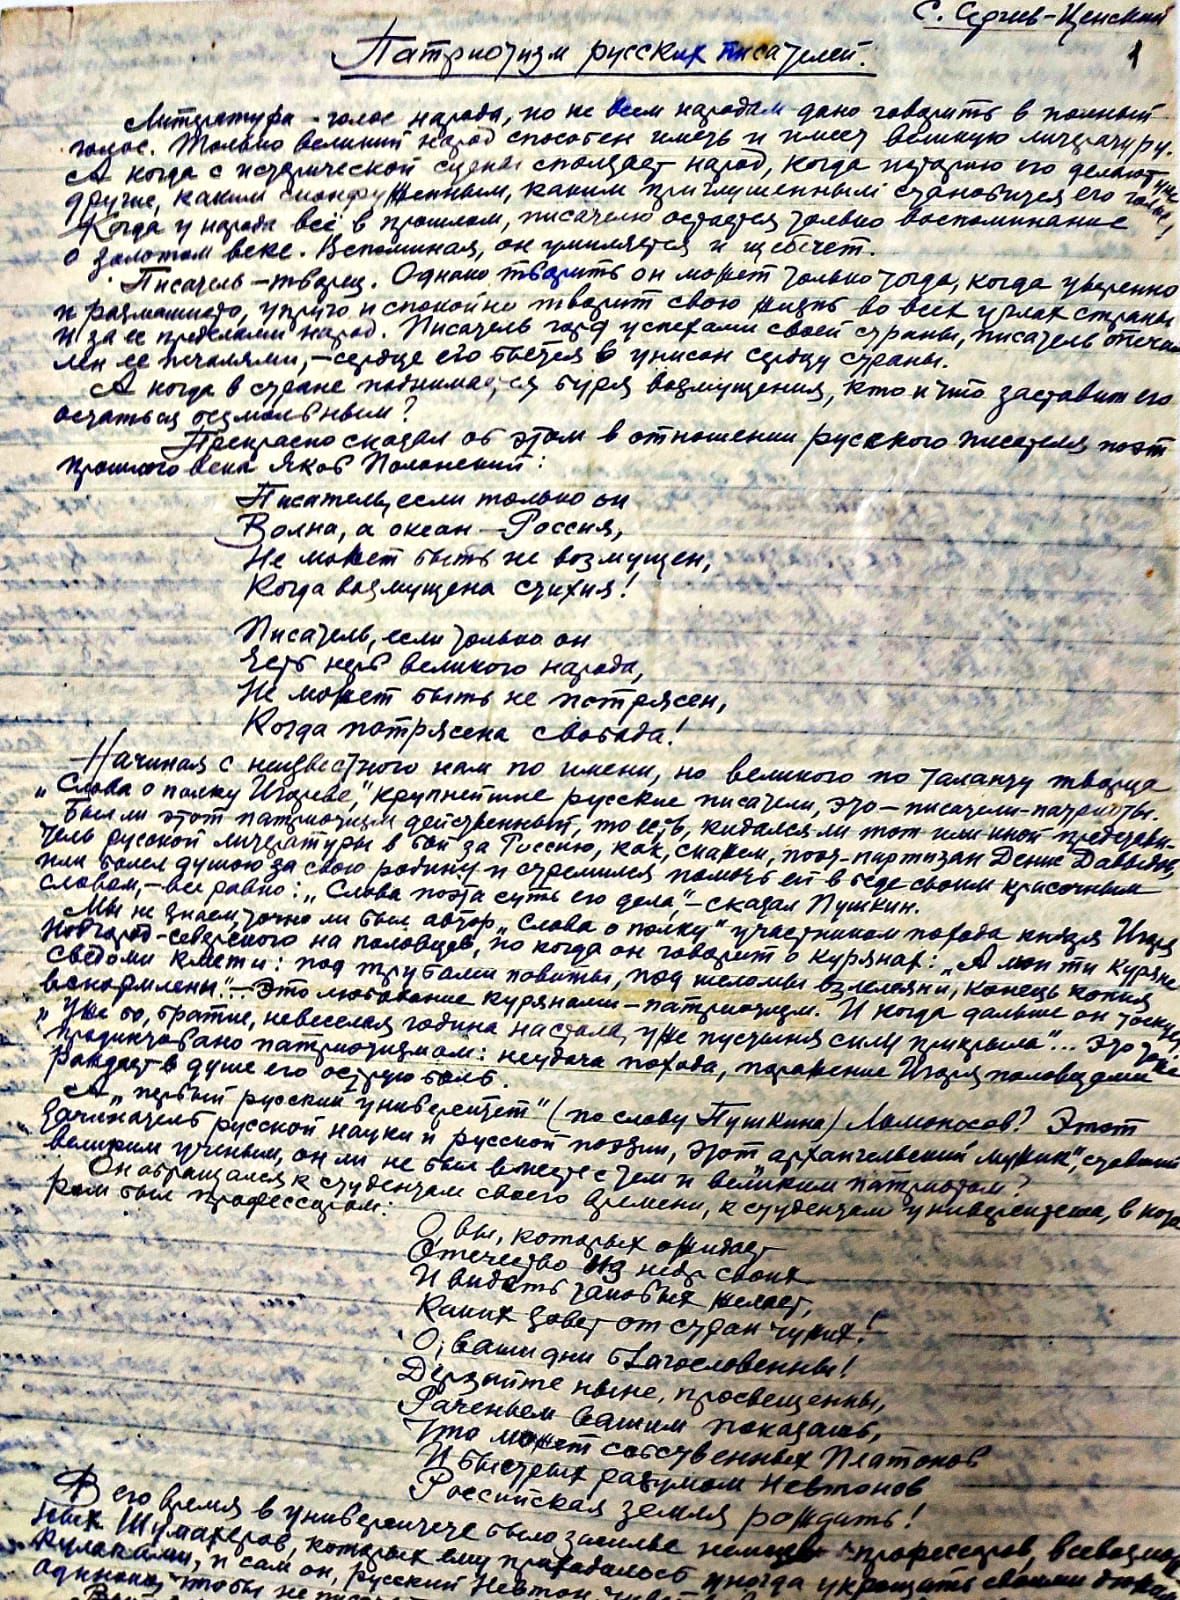 С. Сергеев-Ценский
1
Патриотизм русских писателей.
Литература - голос народа, но не всем народам дано говорить в полный
голос. Только великий народ способен иметь и имеет великую литературу.
А когда с исторической сцены сползает народ, когда историю его делают уже
другие, каким сконфуженным, каким приглушенным становится его голос,
Когда у народа всё в прошлом, писателю остается только воспоминание
о золотом веке. Вспоминая, он умиляется и щебечет.
Писатель - творец. Однако творить он может только тогда, когда уверенно
и размашисто, упруго и спокойно творит свою жизнь во всех углах страны
и за ее пределами народ. Писатель горд успехами своей страны, писатель опеча-
лен ее печалями, - сердце его бьется в унисон сердцу страны.
А когда в стране поднимается буря возмущения, кто и что заставит его
остаться безмолвным?
Прекрасно сказал об этом в отношении русского писателя поэт
прошлого века Яков Полонский:
Писатель, если только он
Волна, а океан - Россия,
Не может быть не возмущен,
Когда возмущена стихия!
Писатель, если только он
Есть нерв великого народа,
Не может быть не потрясен,
Когда потрясена свобода!
Начиная с неизвестного нам по имени, но великого по таланту творца
„Слова о полку Игореве", крупнейшие русские писатели, это - писатели-патриоты.
Был ли этот патриотизм действенный, то есть, кидался ли тот или иной представи-
тель русской литературы в бой за Россию, как, скажем, поэт-партизан Денис Давыдов,
или болел душою за свою родину и стремился помочь ей в беде своим красочным
словом, - все равно: „Слова поэта суть его дела", - сказал Пушкин.
Мы не знаем, точно ли был автор „Слова о полку" участником похода князя Игоря
Новгород-северского на половцев, но когда он говорит о курянах: „А мои ти куряне
сведоми кмети: под трубами повиты, под шеломы взлелеяни, конець копия
вскормлены"... Это любование курянами - патриотизм. И когда дальше он тоскует
„Уже бо, братие, невеселая година настала, уже пустыня силу прикрыла"... это тоже
продиктовано патриотизмом: неудача похода, поражение Игоря половцами
рождает в душе его острую боль.
А „первый русский университет" (по слову Пушкина) Ломоносов? Этот
зачинатель русской науки и русской поэзии, этот „архангельский мужик", ставший
великим ученым, он ли не был вместе с тем и великим патриотом?
Он обращался к студентам своего времени, к студентам университета, в кото-
ром был профессором:
О, вы, которых ожидает
Отечество из недр своих
И видеть таковых желает,
Каких зовет от стран чужих!
О, ваши дни благословенны!
Дерзайте ныне, просвещенны,
Раченьем вашим показать,
Что может собственных Платонов
И быстрых разумом Невтонов
Российская земля рождать!
В его время в университете было засилье немцев-профессоров, всевозмож-
ных Шумахеров, которых ему приходилось иногда укрощать своими дюжими
кулаками, и сам он, русский Невтон,
одиноко, чтобы не